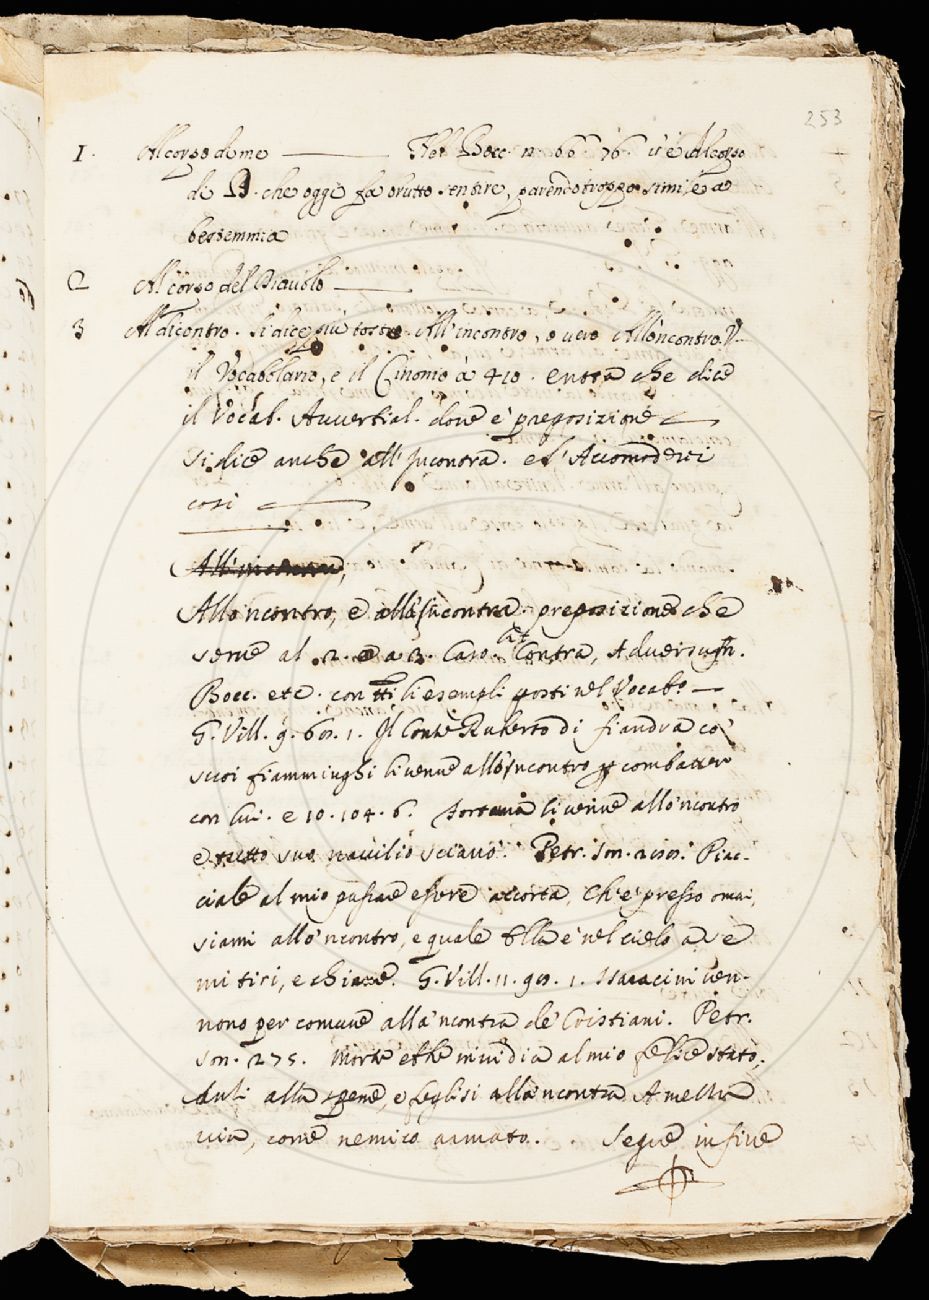 253
1. Al corpo di me — Bocc. n. 66 76. v'è Al corpo
di che oggi fa brutto sentire, parendo troppo simile a
bestemmia
2 Al corpo del Diavolo —
3 Al dicontro. si dice più tosto All'incontro, o vero Allo'ncontro. V.
il Vocabolario, e il Cinonio à 410. entra che dice
il Vocab. Avverbial. dove è preposizione —
si dice anche all'Incontra. e
così —
Allo'ncontro, e all'Incontra preposizione che
serve al 2. e a 3. Caso. lat. Contra, Adversum.
Bocc. etc. con tti li esempli posti nel Vocabo —
G. Vill. 9. 1. Il Conte Ruberto di fiandra co'
suoi fiamminghi li venne all'Incontro p combatter
con lui. e 10. 104. 6. li venne allo'ncontro
e tutto suo navilio Petr. son. Piac-
ciale al mio passare essere accorta, Ch'è presso omai,
siami allo'ncontro, e quale Ella è nel cielo a se
mi tiri, e chiame. G. Vill. 11. 1. Saracini ven-
nono per comune alla'ncontra de' Cristiani. Petr.
son. 275. Morte ebbe invidia al mio felice stato,
alla speme, e feglisi alla'ncontra A mezza
via, come nemico armato. Segue in fine